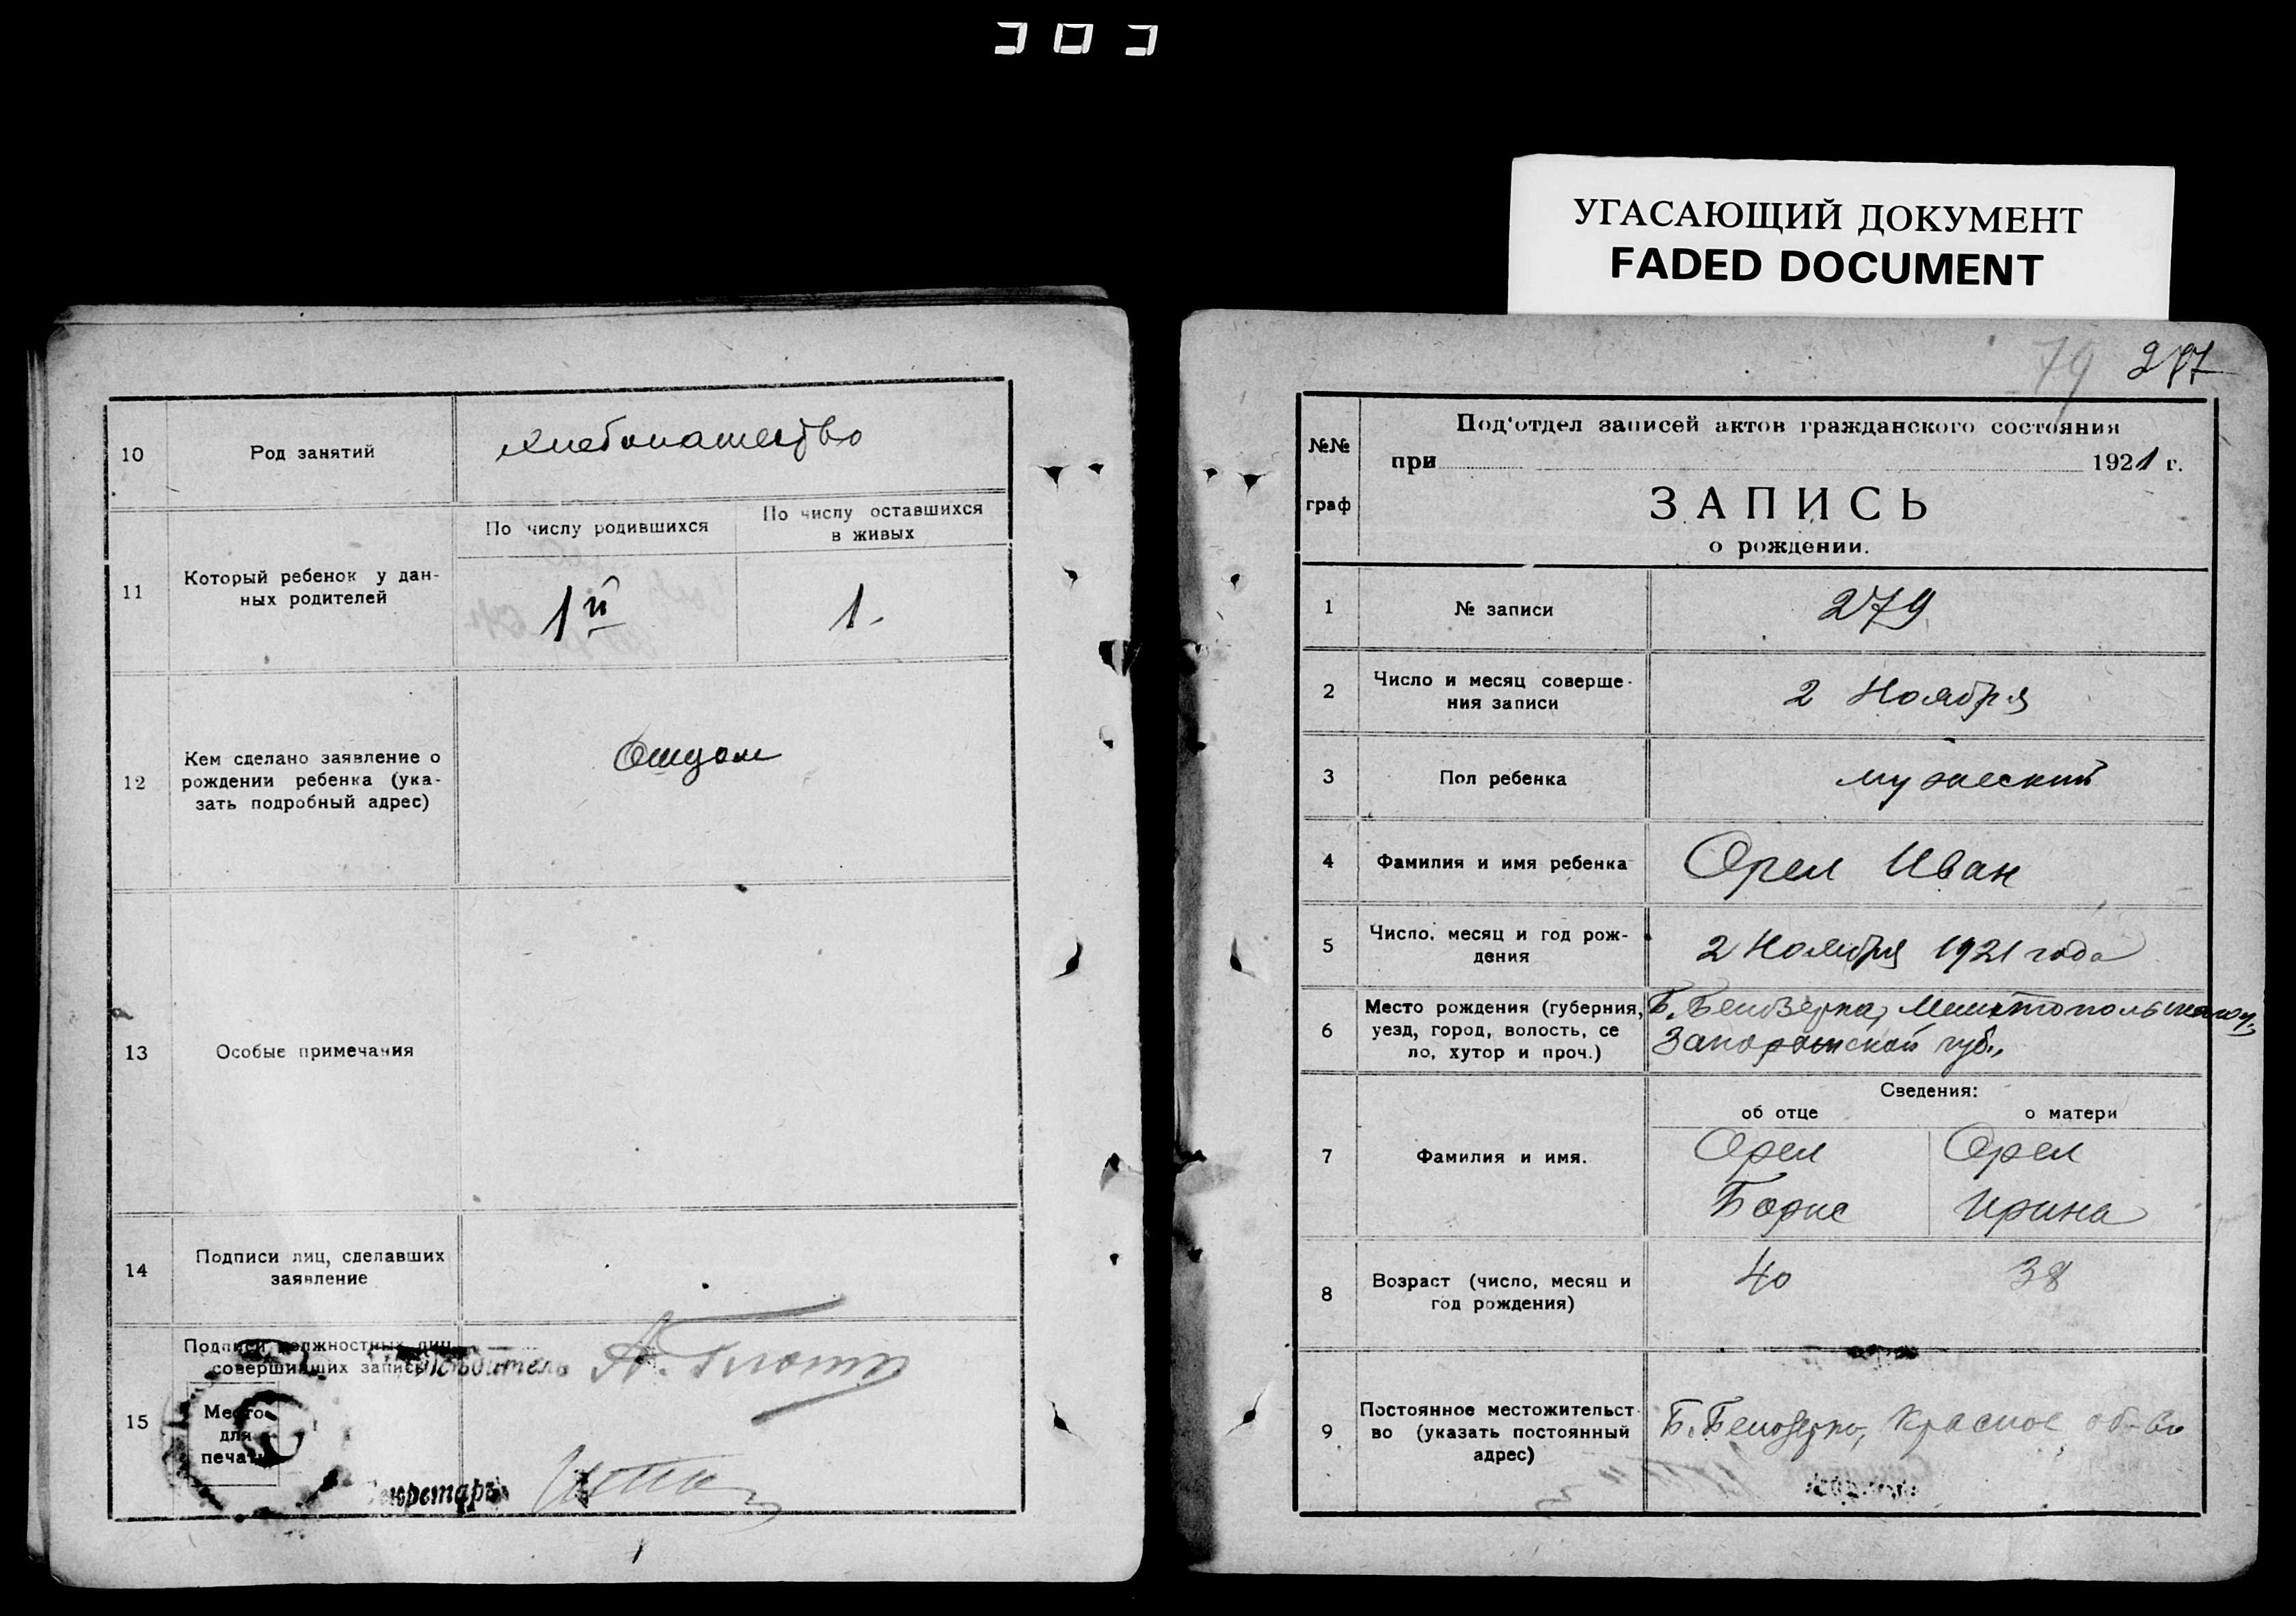 УГАСАЮЩИЙ ДОКУМЕНТ
FADED DOCUMENT
10
Род занятий
хлебопашество
11
Который ребенок у дан-
ных родителей
По числу родившихся
1й
По числу оставшихся
в живых
1.
12
Кем сделано заявление о
рождении ребенка (ука-
зать подробный адрес)
Отцом
13
Особые примечания
14
Подписи лиц, сделавших
заявление
15
Подписи должностных лиц,
совершивших запись
Место
для
печати
Секретарь
79 287
№№
граф
Под'отдел записей актов гражданского состояния
при 1921 г.
ЗАПИСЬ
о рождении.
1
№ записи
279
2
Число и месяц соверше-
ния записи
2 Ноября
3
Пол ребенка
мужеский
4
Фамилия и имя ребенка
Орел Иван
5
Число, месяц и год рож-
дения
2 Ноября 1921 года
6
Место рождения (губерния,
уезд, город, волость, се
ло, хутор и проч.)
Б. Белозерка, Мелитопольского у.
Запорожской губ.,
Сведения:
об отце
о матери
7
Фамилия и имя.
Орел
Борис
Орел
Ирина
8
Возраст (число, месяц и
год рождения)
40
38
9
Постоянное местожительст-
во (указать постоянный
адрес)
Б. Белозерка, Красное об-во